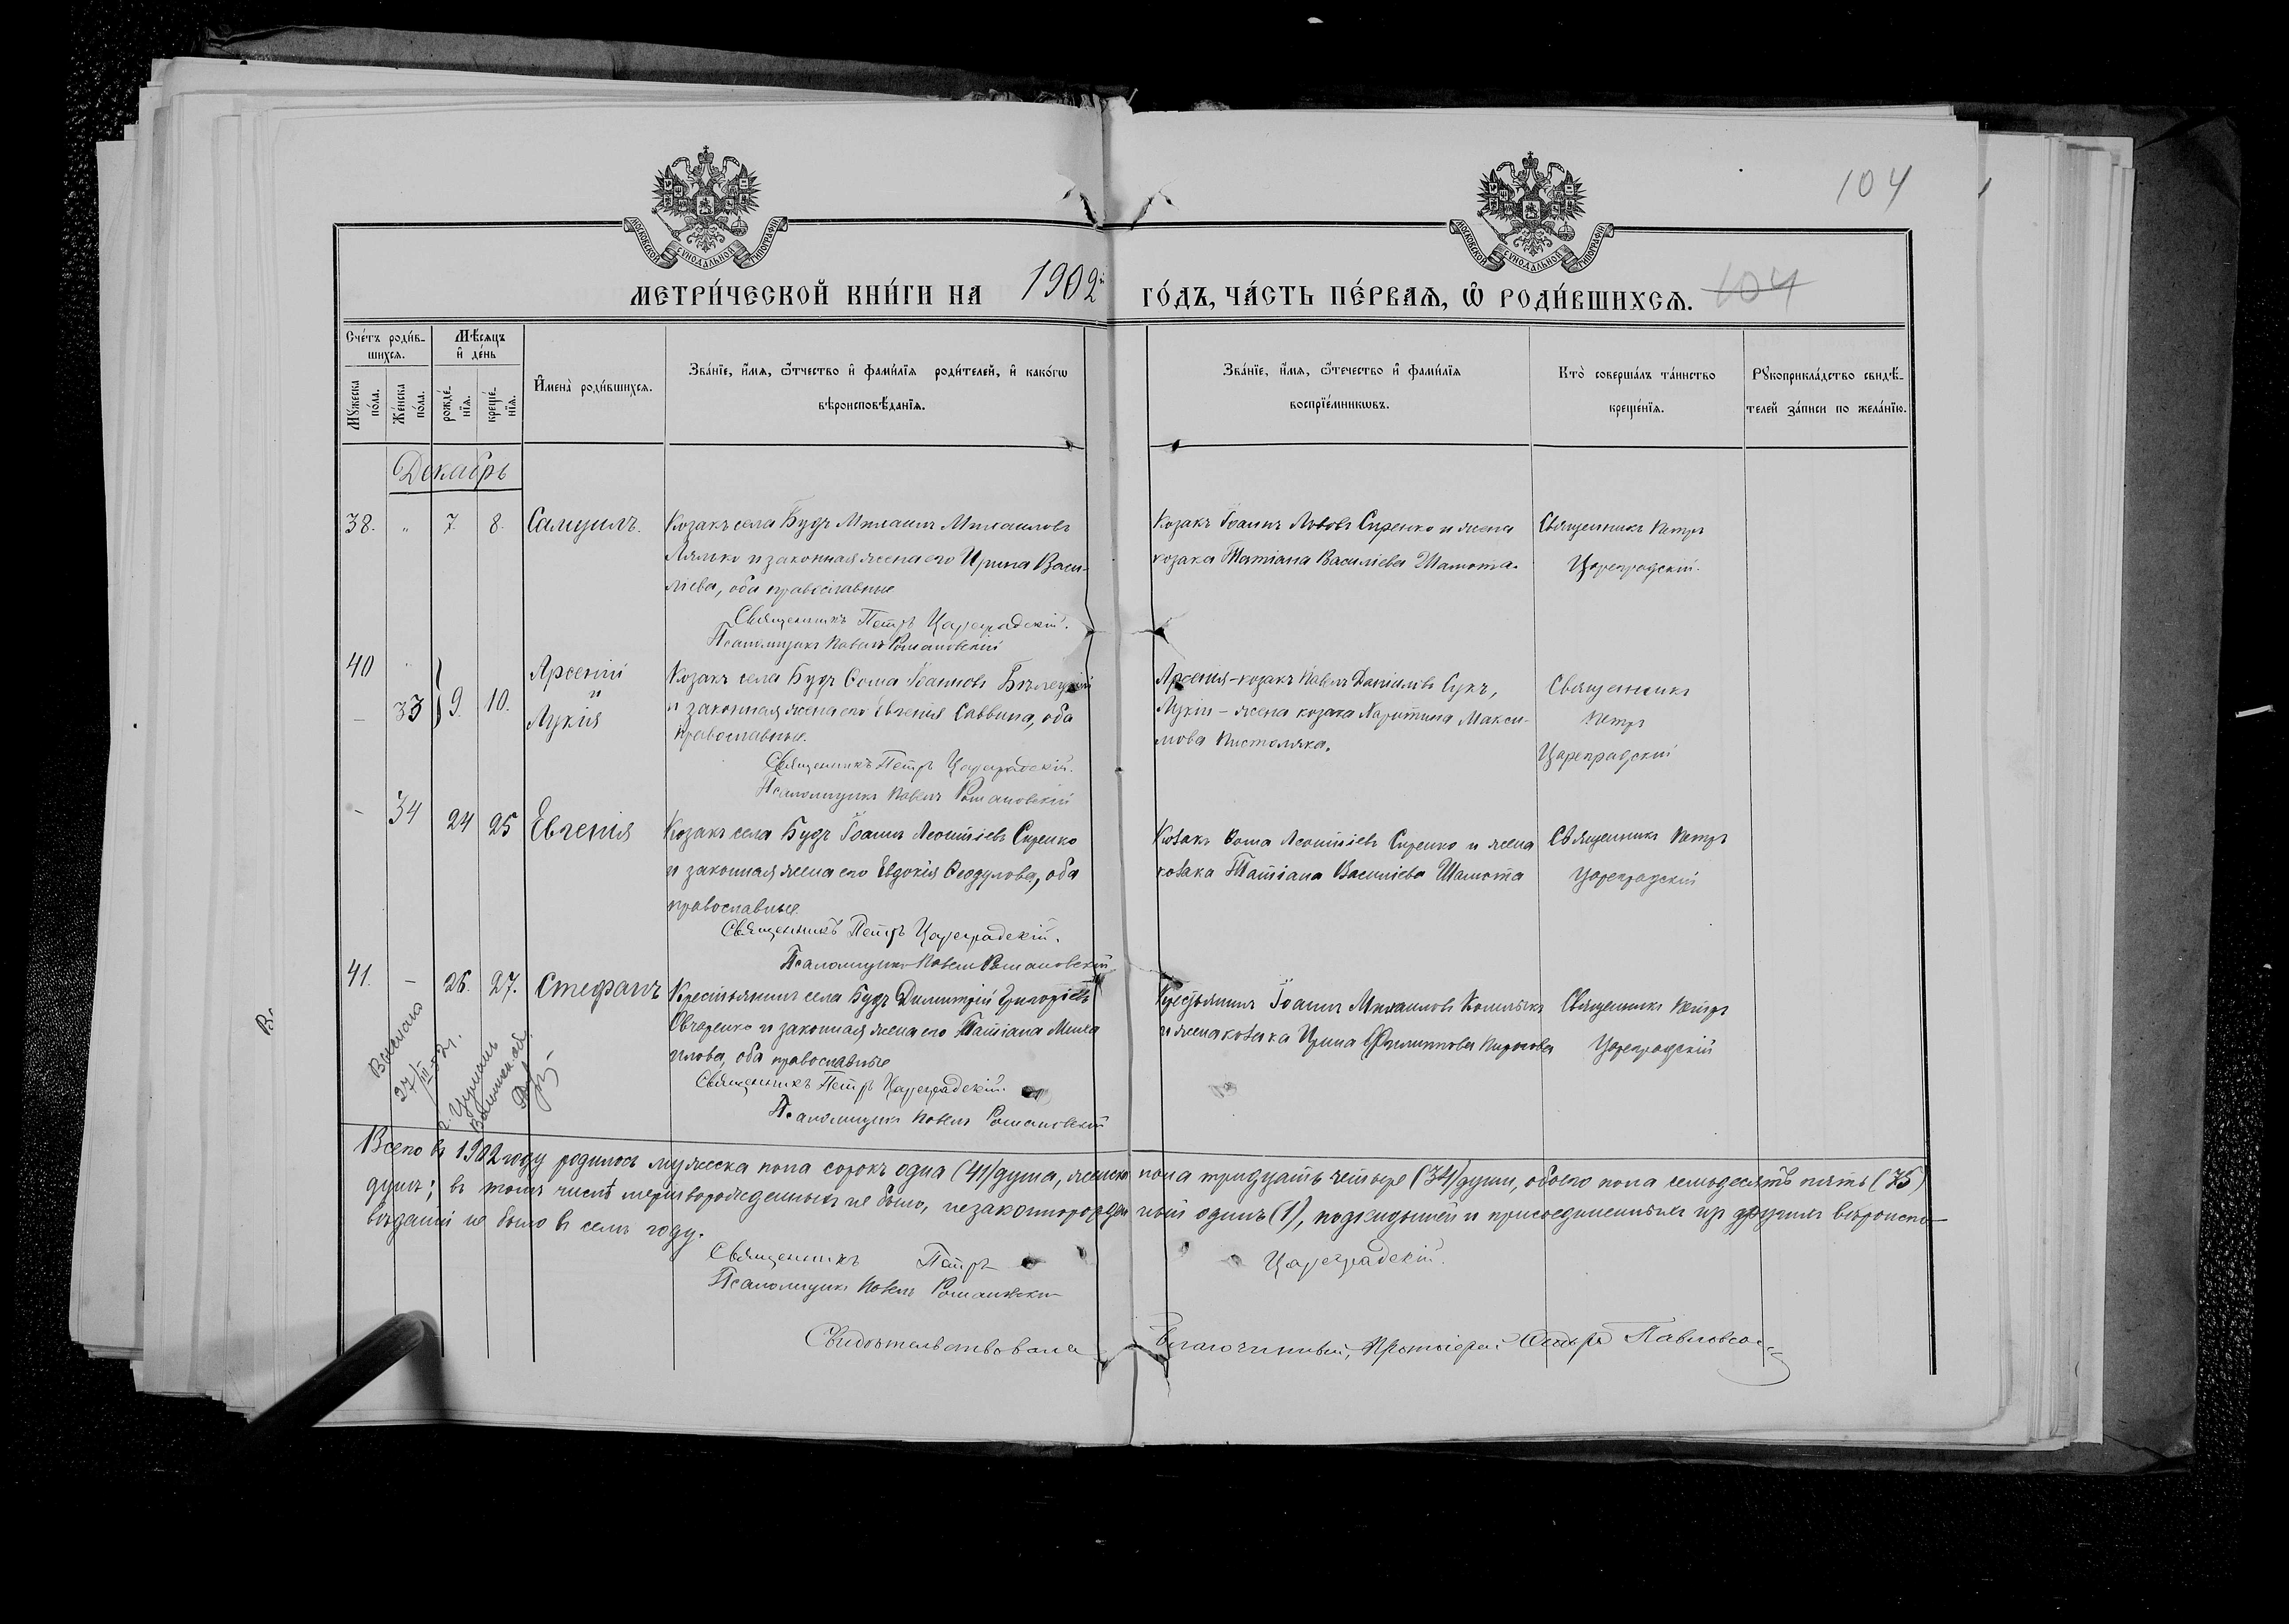 104
МОСКОВСКОЙ СУНОДАЛЬНОЙ ТИПОГРАФІИ
МОСКОВСКОЙ СУНОДАЛЬНОЙ ТИПОГРАФІИ
МЕТРИ́ЧЕСКОЙ КНИ́ГИ НА 1902й ГО́ДЪ, ЧА́СТЬ ПЕ́РВАѦ, Ѡ҆ РОДИ́ВШИХСѦ. 104
Сче́тъ роди́в-
шихсѧ.
Мѣ́сѧцъ
и҆ де́нь
Мꙋ́жеска
по́ла.
Же́нска
по́ла.
рожде́-
нїѧ.
креще́-
нїѧ.
И҆мена̀ роди́вшихсѧ.
Зва́нїе, и҆́мѧ, ѻ҆́тчество и҆ фами́лїѧ роди́телей, и҆ како́гѡ
вѣроисповѣ́данїѧ.
Зва́нїе, и҆́мѧ, ѻ҆́течество и҆ фами́лїѧ
воспрїе́мникѡвъ.
Кто̀ соверша́лъ та́инство
креще́нїѧ.
Рꙋкоприкла́дство свидѣ́-
телей за́писи по жела́нїю.
Декабрь
38. „ 7. 8. Самуилъ.
Козакъ села Будъ Михаилъ Михаиловъ
Лялько и законная жена его Ирина Васи-
ліева, оба православные
Священникъ Петръ Цареградскій.
Псаломщикъ Павелъ Романовскій
Козакъ Іоаннъ Львовъ Сиренко и жена
козака Татіана Василіева Шамота.
Священникъ Петръ
Цареградскій.
40 „
— 33 9. 10.
Арсеній
и
Лукія
Козакъ села Будъ Ѳома Іоанновъ Бѣлецкій
и законная жена его Евгенія Саввина, оба
православные.
Священникъ Петръ Цареградскій.
Псаломщикъ Павелъ Романовскій
Арсенія – козакъ Павелъ Даніиловъ Сукъ,
Лукіи – жена козака Харитина Макси-
мова
Священникъ
Петръ
Цареградскій
— 34 24 25 Евгенія
Козакъ села Будъ Іоаннъ Леонтіевъ Сиренко
и законная жена его Евдокія Ѳеодулова, оба
православные.
Священникъ Петръ Цареградскій.
Псаломщикъ Павелъ Романовскій
Козакъ Ѳома Леонтіевъ Сиренко и жена
козака Татіана Василіева Шамота
Священникъ Петръ
Цареградскій
41. — 26. 27. Стефанъ
Крестьянинъ села Будъ Димитрій Григоріевъ
Овчаренко и законная жена его Татіана Миха
илова, оба православные
Священникъ Петръ Цареградскій.
Псаломщикъ Павелъ Романовскій
Крестьянинъ Іоаннъ Михаиловъ
и жена козака Ирина Филиппова
Священникъ Петръ
Цареградскій
Выслано
27/III
Всего въ 1902 году родилось мужеска пола сорокъ одна (41) душа, женска пола тридцать четыре (34) души, обоего пола семьдесятъ пять (75)
душъ; въ томъ числѣ мертворожденныхъ не было, незаконнорожден ный одинъ (1), подкидышей и присоединенныхъ изъ другихъ вѣроиспо-
вѣданій не было въ семъ году.
Священникъ Петръ Цареградскій.
Псаломщикъ Павелъ Романовскій
Свидѣтельствовалъ Благочинный, Протоіерей